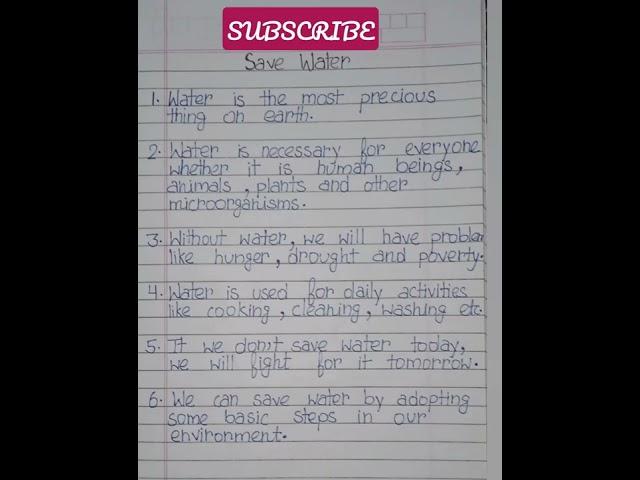 SUBSCRIBE
Save Water
1. Water is the most precious
thing on earth.
2. Water is necessary for everyone
whether it is human beings,
animals, plants and other
microorganisms.
3. Without water, we will have problem
like hunger, drought and poverty.
4. Water is used for daily activities
like cooking, cleaning, washing etc.
5. If we don't save water today,
we will fight for it tomorrow.
6. We can save water by adopting
some basic steps in our
environment.